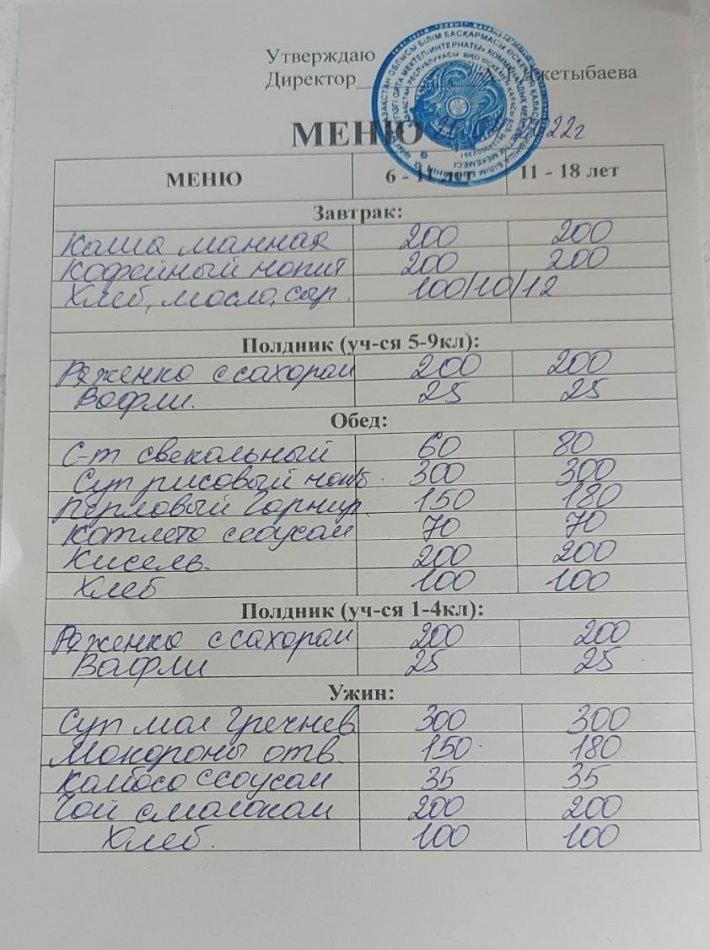 Утверждаю
Директор Джетыбаева
МЕНЮ 22г
МЕНЮ 6 - 11 лет 11 - 18 лет
Завтрак:
Каша манная 200 200
Кофейный напит 200 200
Хлеб, масло, сыр. 100/10/12
Полдник (уч-ся 5-9кл):
Ряженка с сахаром 200 200
Вафли. 25 25
Обед:
С-т свекольный 60 80
Суп рисовый 300 300
Перловый гарнир. 150 180
Котлета с соусом 70 70
Кисель. 200 200
Хлеб 100 100
Полдник (уч-ся 1-4кл):
Ряженка с сахаром 200 200
Вафли 25 25
Ужин:
Суп мол гречнев 300 300
Макароны отв. 150 180
Колбаса с соусом 35 35
Чай с молоком 200 200
Хлеб. 100 100